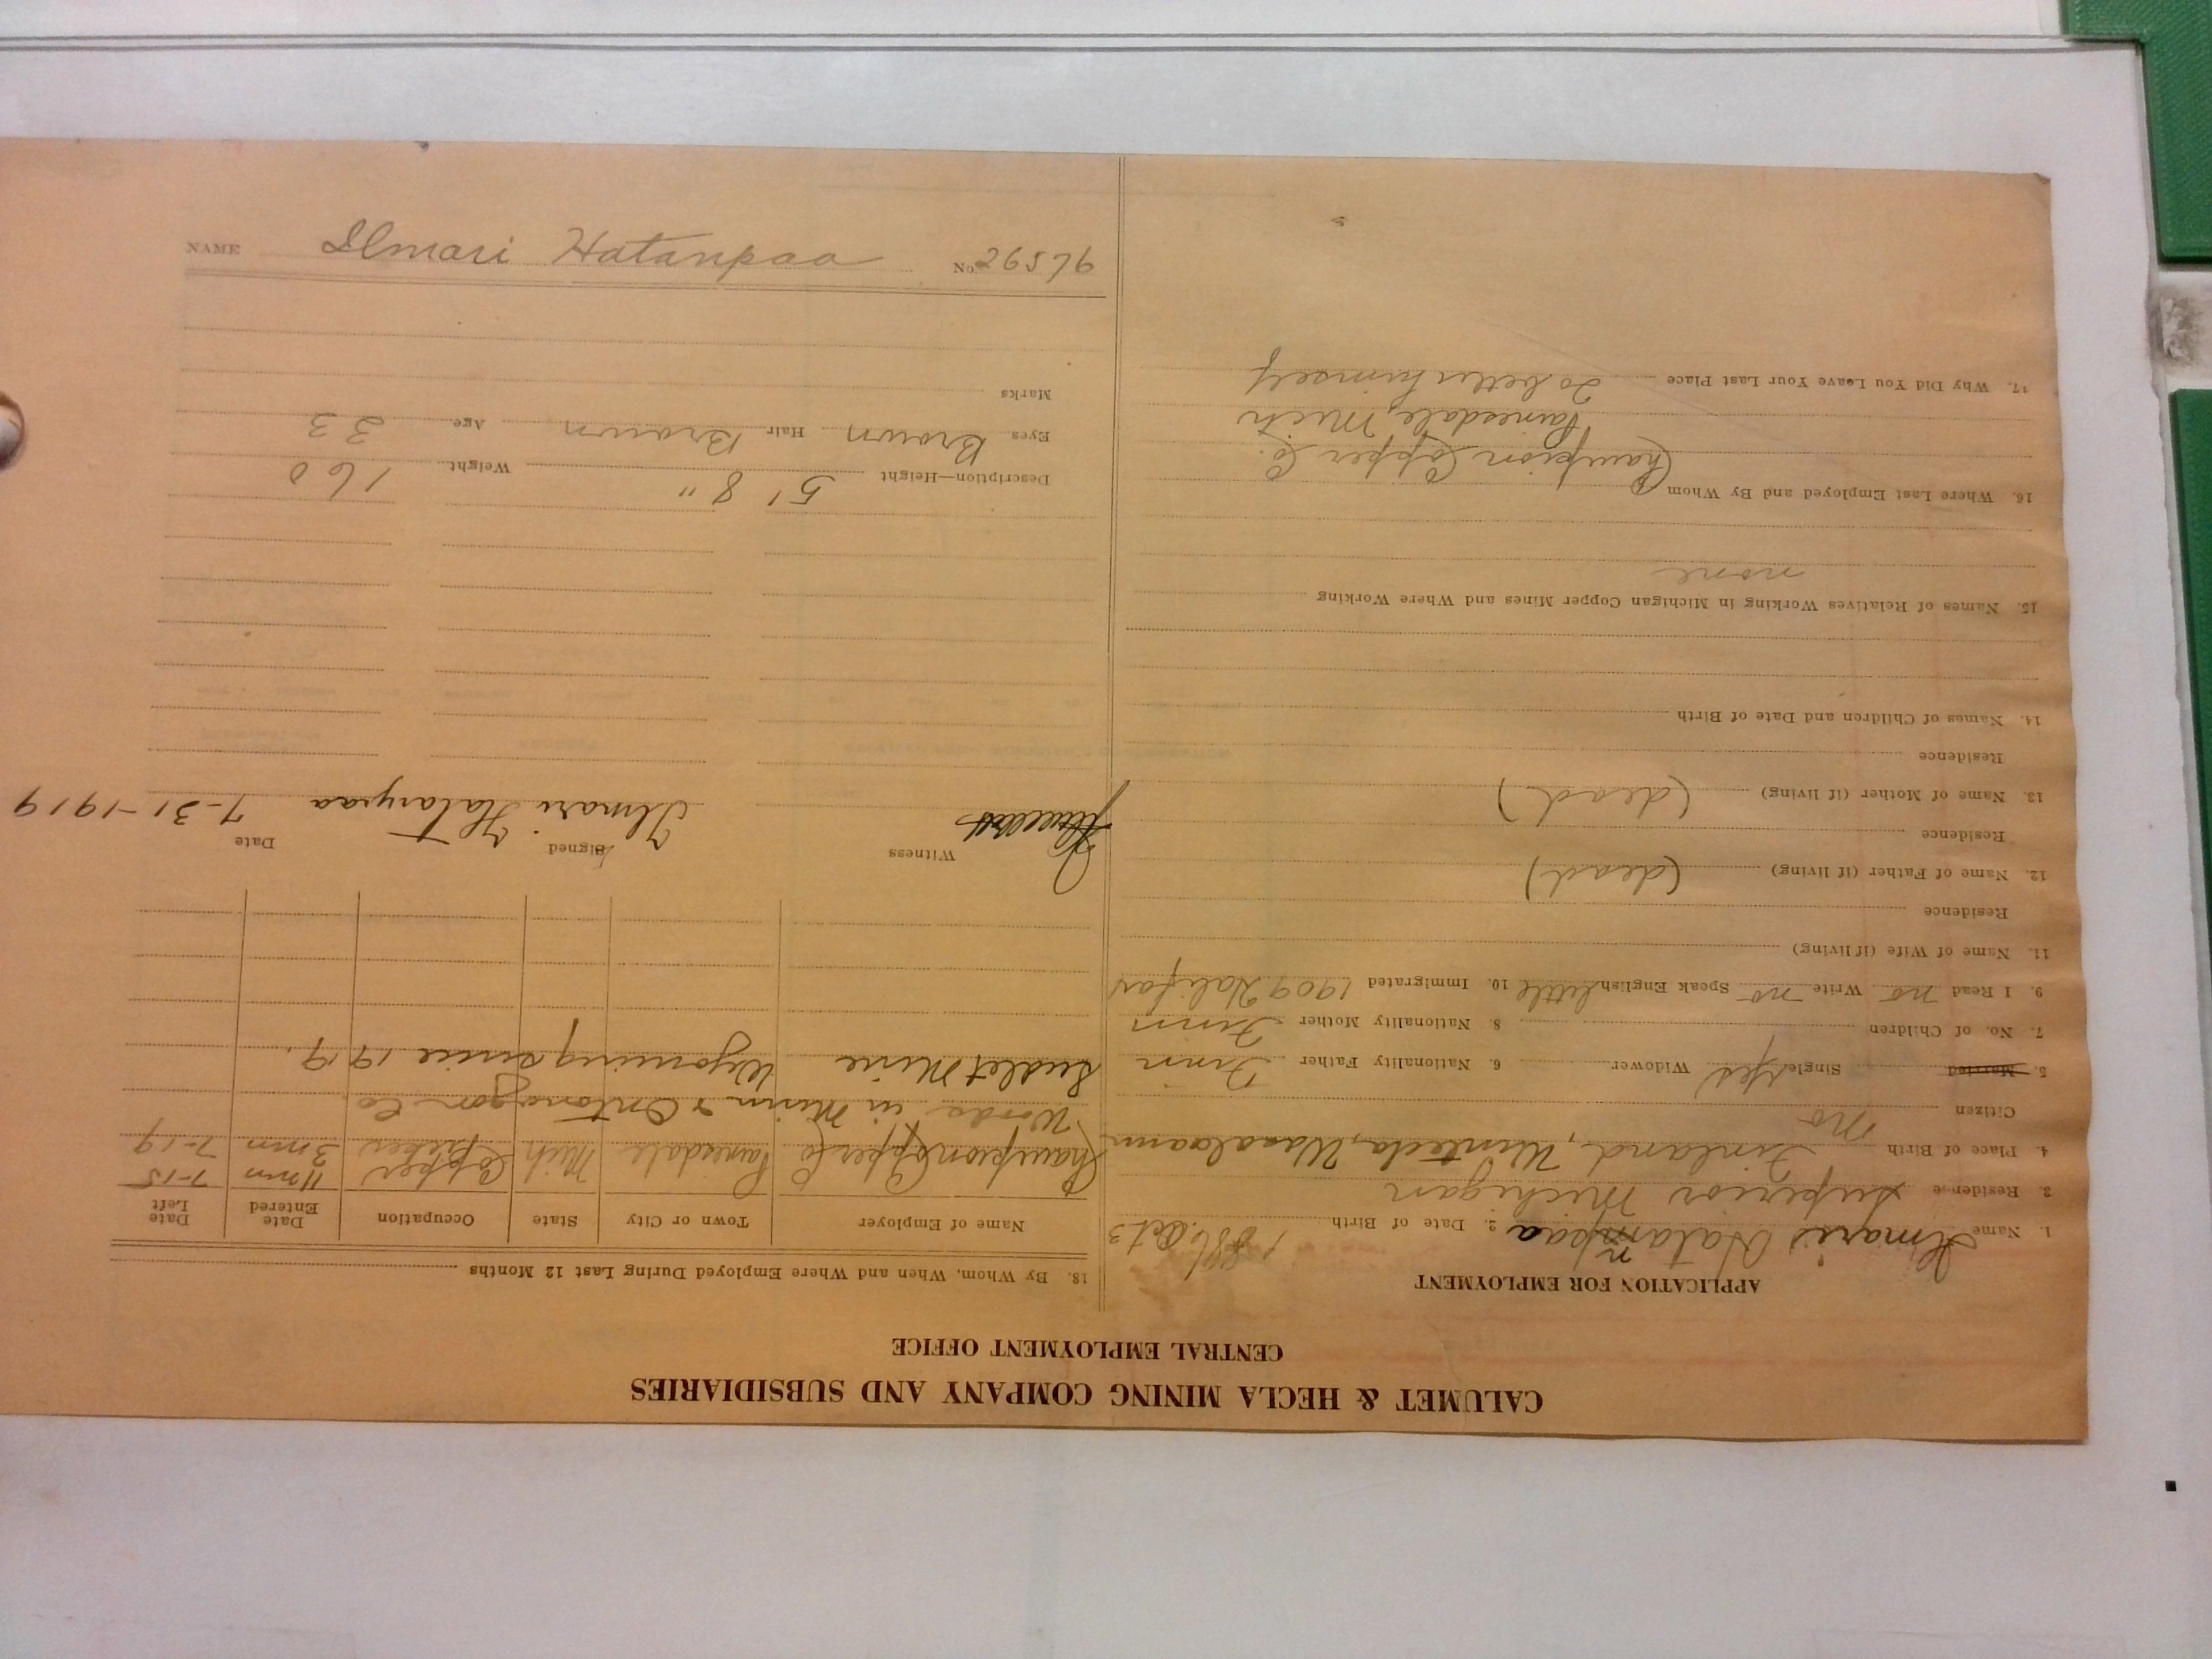 CALUMET & HECLA MINING COMPANY AND SUBSIDIARIES
CENTRAL EMPLOYMENT OFFICE
APPLICATION FOR EMPLOYMENT
1. Name Ilmari Hatanpaa 2. Date of Birth 1886 Oct 3
3. Residence Superior Michigan
4. Place of Birth Finland,
Citizen no
5. Married Single yes Widower 6. Nationality Father Finn
7. No. of Children 8. Nationality Mother Finn
9. I Read no Write no Speak English little 10. Immigrated 1909 Halifax
11. Name of Wife (if living)
Residence
12. Name of Father (if living) (dead)
Residence
13. Name of Mother (if living) (dead)
Residence
14. Names of Children and Date of Birth
15. Names of Relatives Working in Michigan Copper Mines and Where Working
none
16. Where Last Employed and By Whom
Champion Copper Co.
Painesdale, Mich
17. Why Did You Leave Your Last Place To better himself
18. By Whom, When and Where Employed During Last 12 Months
Name of Employer Town or City State Occupation Date Entered Date Left
Champion Copper Co Painesdale Mich Copper 11 mn 7-15
3 mn 7-19
Woods in Minn & Ontonagon Co.
Mine Wyoming since 1919.
Witness Signed Ilmari Hatanpaa Date 7-31-1919
Description—Height 5' 8" Weight 160
Eyes Brown Hair Brown Age 33
Marks
NAME Ilmari Hatanpaa No. 26576